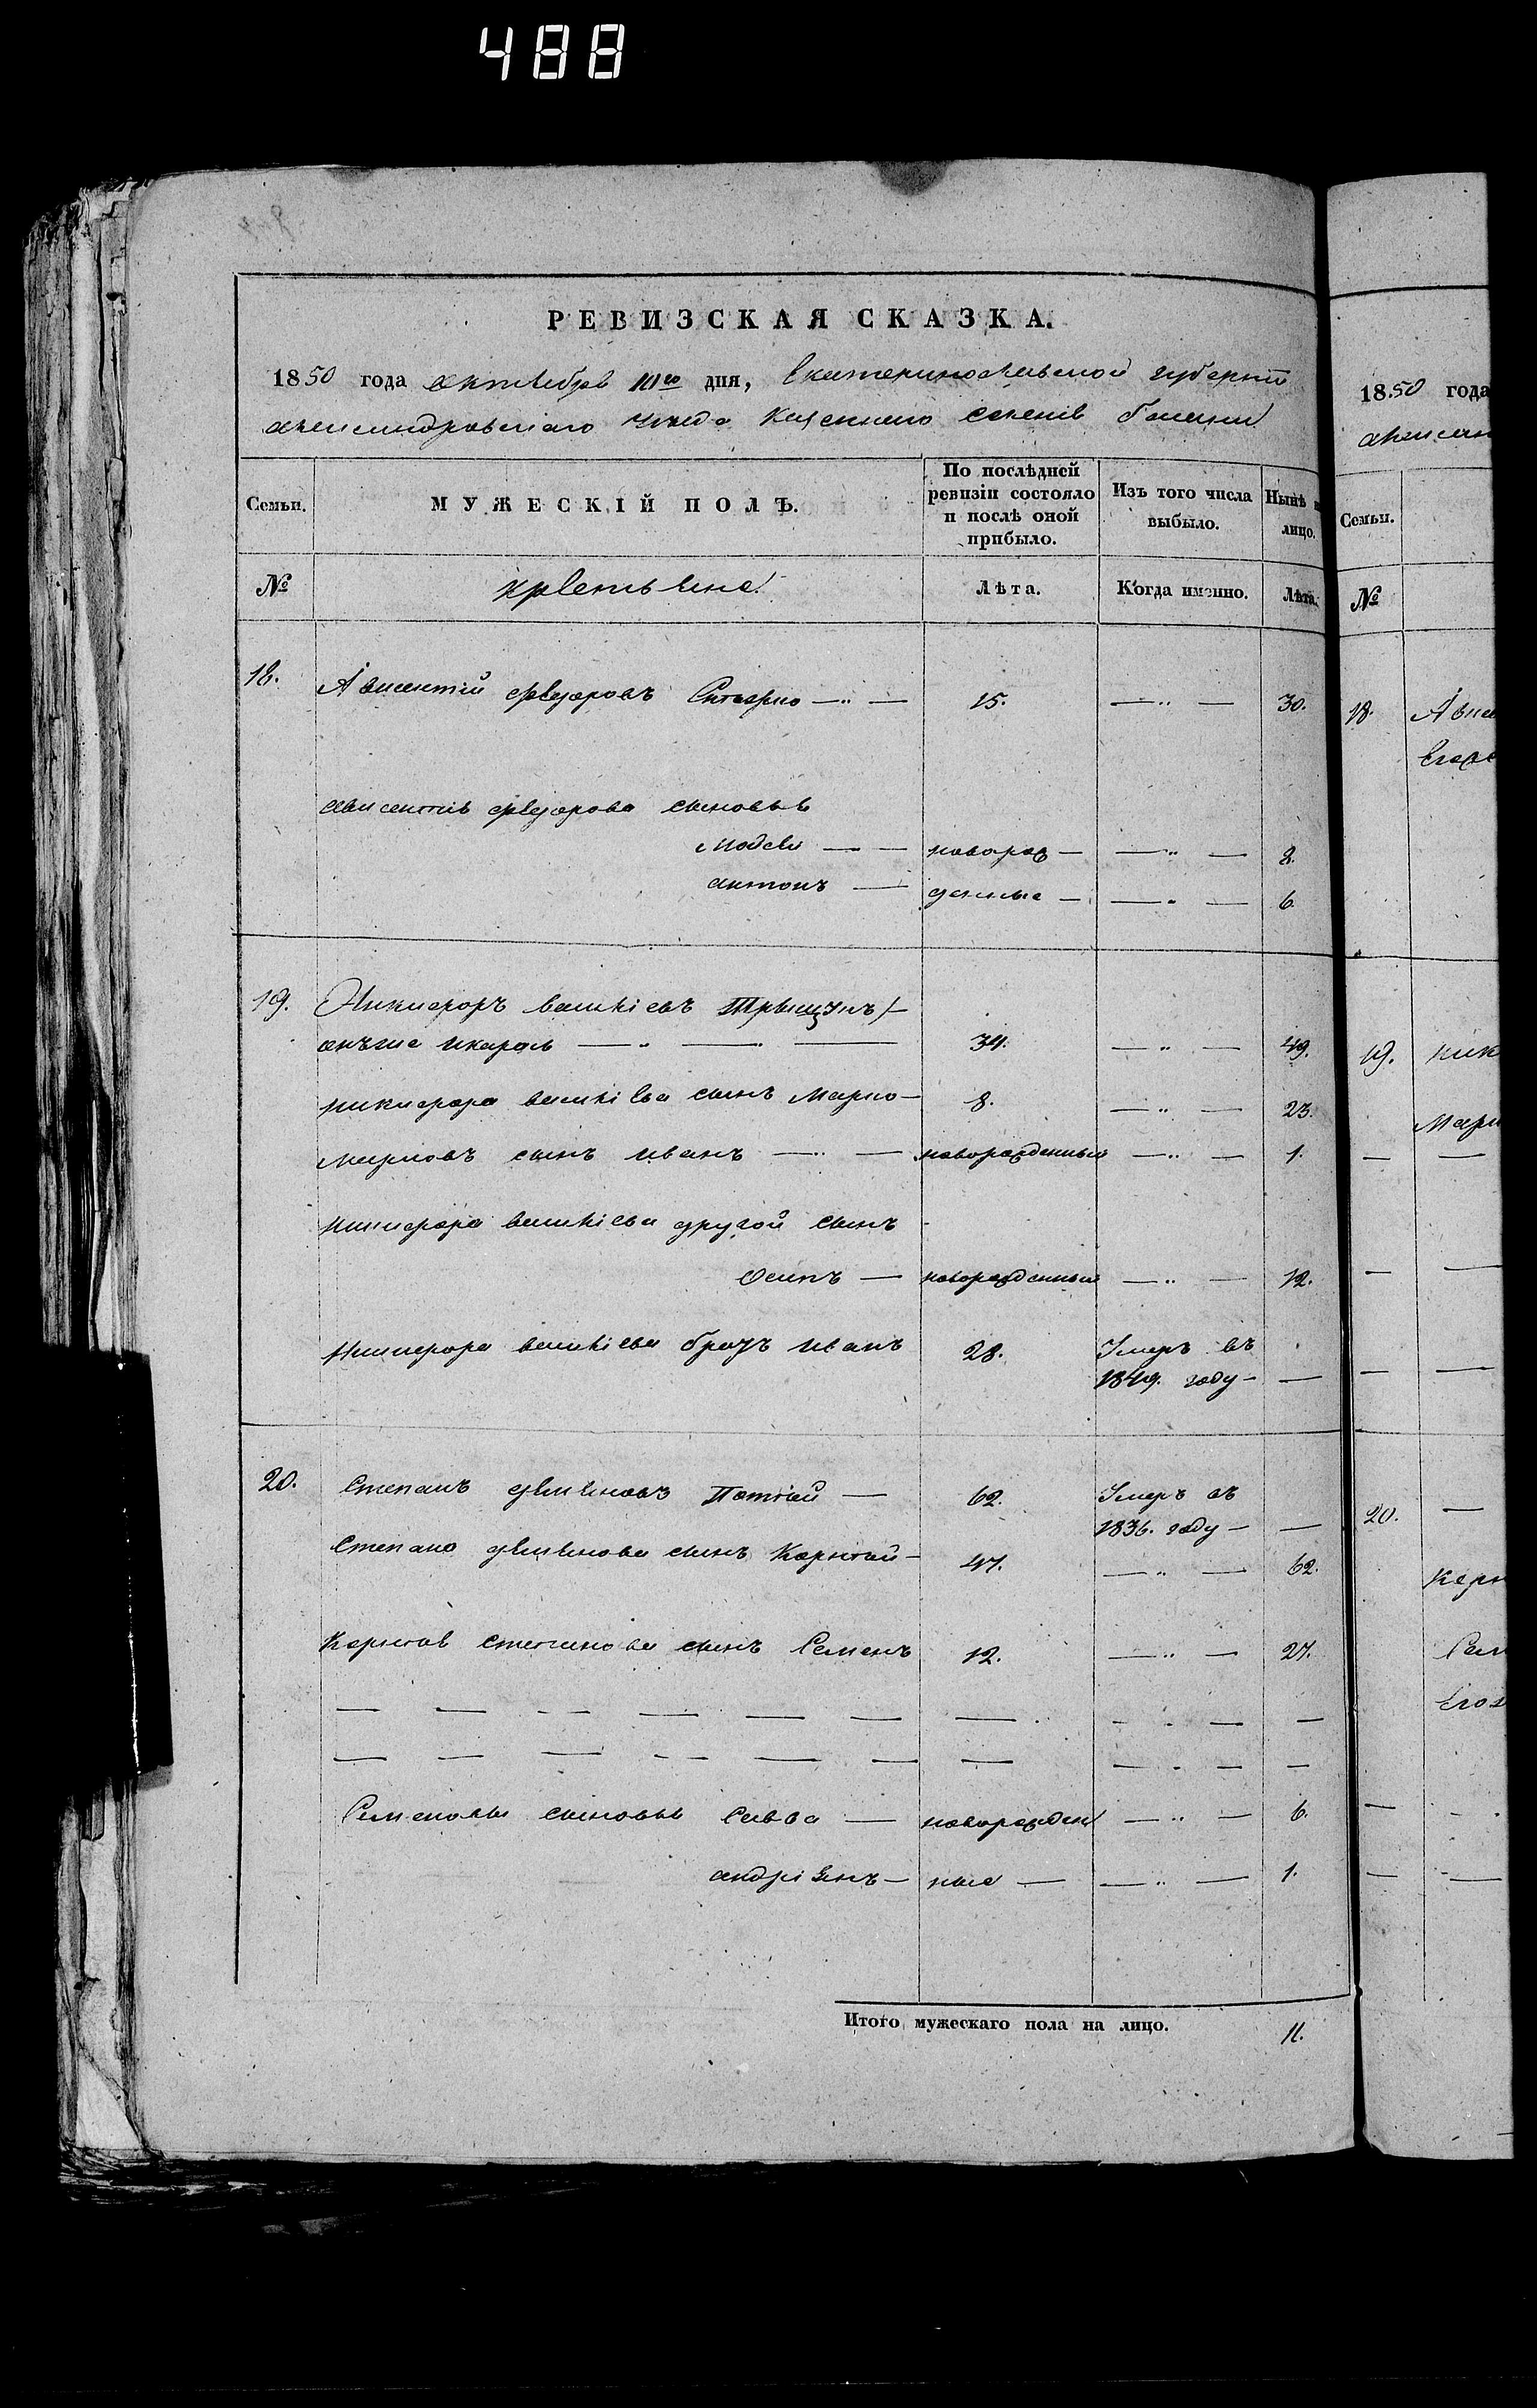 488
РЕВИЗСКАЯ СКАЗКА.
1850 года октября 10го дня, Екатеринославской губернiи
александровскаго уезда Казеннаго селенiя
Семьи. МУЖЕСКІЙ ПОЛЪ. По послѣдней ревизіи состояло и послѣ оной прибыло. Изъ того числа выбыло. Нынѣ лицо.
№ крестьяне Лѣта. Когда именно. Лѣта.
18. Авксентій федоровъ 15. — „ — 30.
авксентія федорова сыновья
— новорож — — „ — 8.
антонъ — денные — — „ — 6.
19. Никифоръ василіевъ
34. — „ — 49.
никифора василіева сынъ Марко — 8. — „ — 23.
марковъ сынъ иванъ — „ — новорожденный — „ — 1.
никифора василіева другой сынъ
осипъ — новорожденный — „ — 12.
никифора василіева братъ иванъ 28. Умеръ въ
1849. году — —
20. Степанъ демяновъ — 62. Умеръ въ
1836. году — —
Степана демянова сынъ Корнѣй — 47. — „ — 62.
Корнѣя степанова сынъ Семенъ 12. — „ — 27.
Семеновы сыновья Савва — новорожден — „ — 6.
андріянъ — ные — — „ — 1.
Итого мужескаго пола на лицо. 11.
1850 года
Семьи.
№
18.
19.
20.